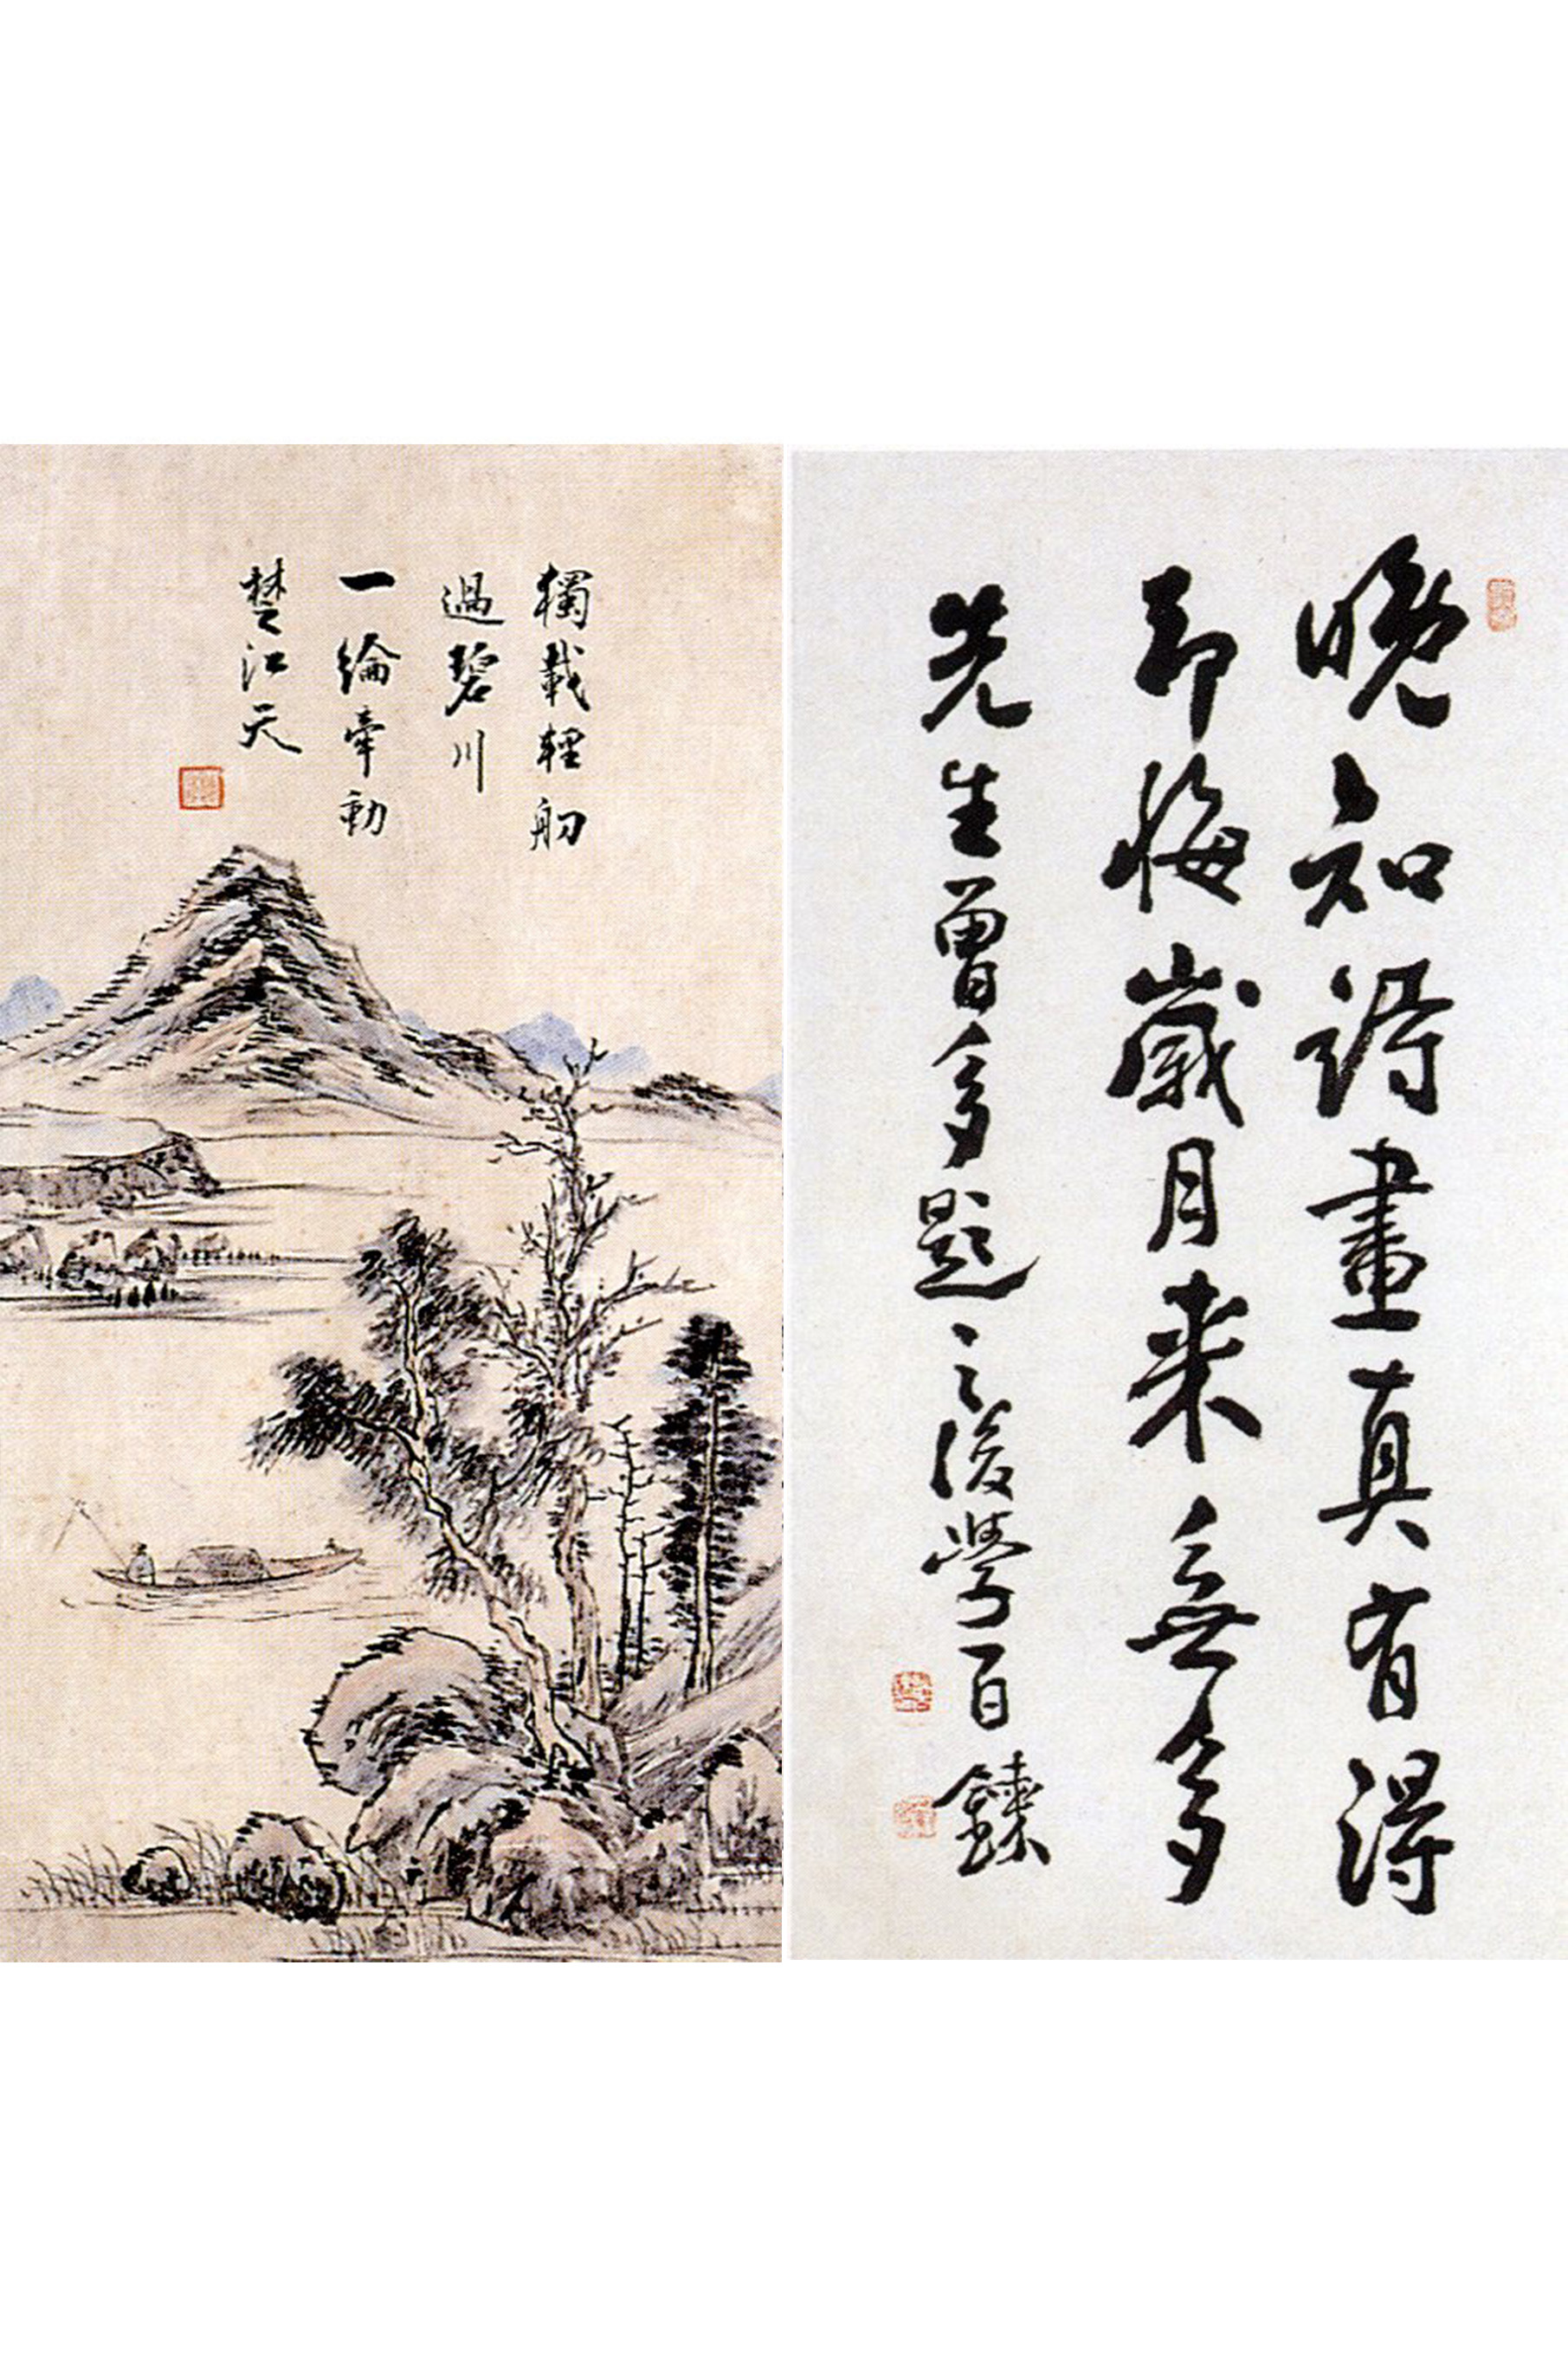 獨載輕舠
過碧川
一綸牽動
楚江天
晚知詩畫真有得
却悔歲月来無多
先生曾多題之後學百鍊